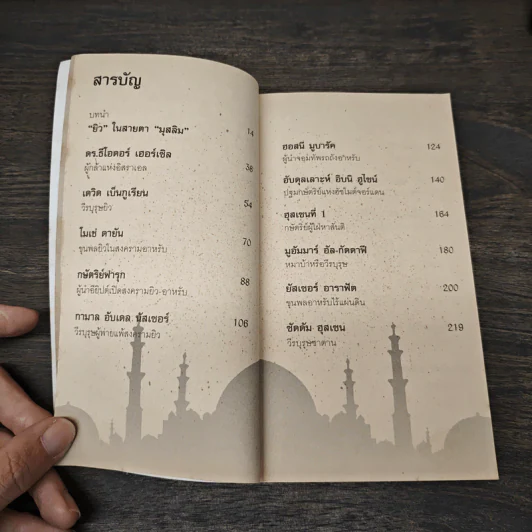 สารบัญ
บทนำ
"ยิว" ในสายตา "มุสลิม" 14
ดร.ธีโอดอร์ เฮอร์เซิล 38
ผู้กล้าแห่งอิสราเอล
เดวิด เบ็นกูเรียน 54
วีรบุรุษยิว
โมเช่ ดายัน 70
ขุนพลยิวในสงครามอาหรับ
กษัตริย์ฟารุก 88
ผู้นำอียิปต์เปิดสงครามยิว-อาหรับ
กามาล อับเดล นัสเซอร์ 106
วีรบุรุษผู้พ่ายแพ้สงครามยิว
ฮอสนี มูบารัค 124
ผู้นำจอมทัพรถถังอาหรับ
อับดุลเลาะห์ อิบนิ ฮูไซน์ 140
ปฐมกษัตริย์แห่งฮัชไมต์จอร์แดน
ฮุสเซนที่ 1 164
กษัตริย์ผู้ใฝ่หาสันติ
มูอัมมาร์ อัล-กัดดาฟี 180
หมาบ้าหรือวีรบุรุษ
ยัสเซอร์ อาราฟัต 200
ขุนพลอาหรับไร้แผ่นดิน
ซัดดัม ฮุสเซน 219
วีรบุรุษซาตาน